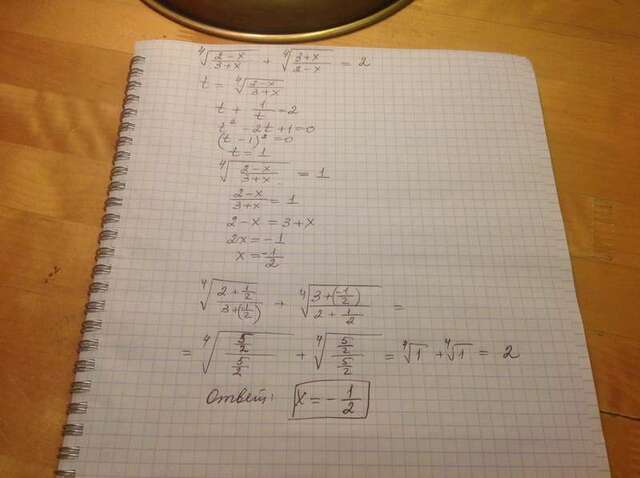 ⁴√((2-x)/(3+x)) + ⁴√((3+x)/(2-x)) = 2
t = ⁴√((2-x)/(3+x))
t + 1/t = 2
t² - 2t + 1 = 0
(t - 1)² = 0
t = 1
⁴√((2-x)/(3+x)) = 1
(2-x)/(3+x) = 1
2 - x = 3 + x
2x = -1
x = -1/2
⁴√((2 + 1/2)/(3 + (-1/2))) + ⁴√((3 + (-1/2))/(2 + 1/2)) =
= ⁴√((5/2)/(5/2)) + ⁴√((5/2)/(5/2)) = ⁴√1 + ⁴√1 = 2
Ответ: x = - 1/2